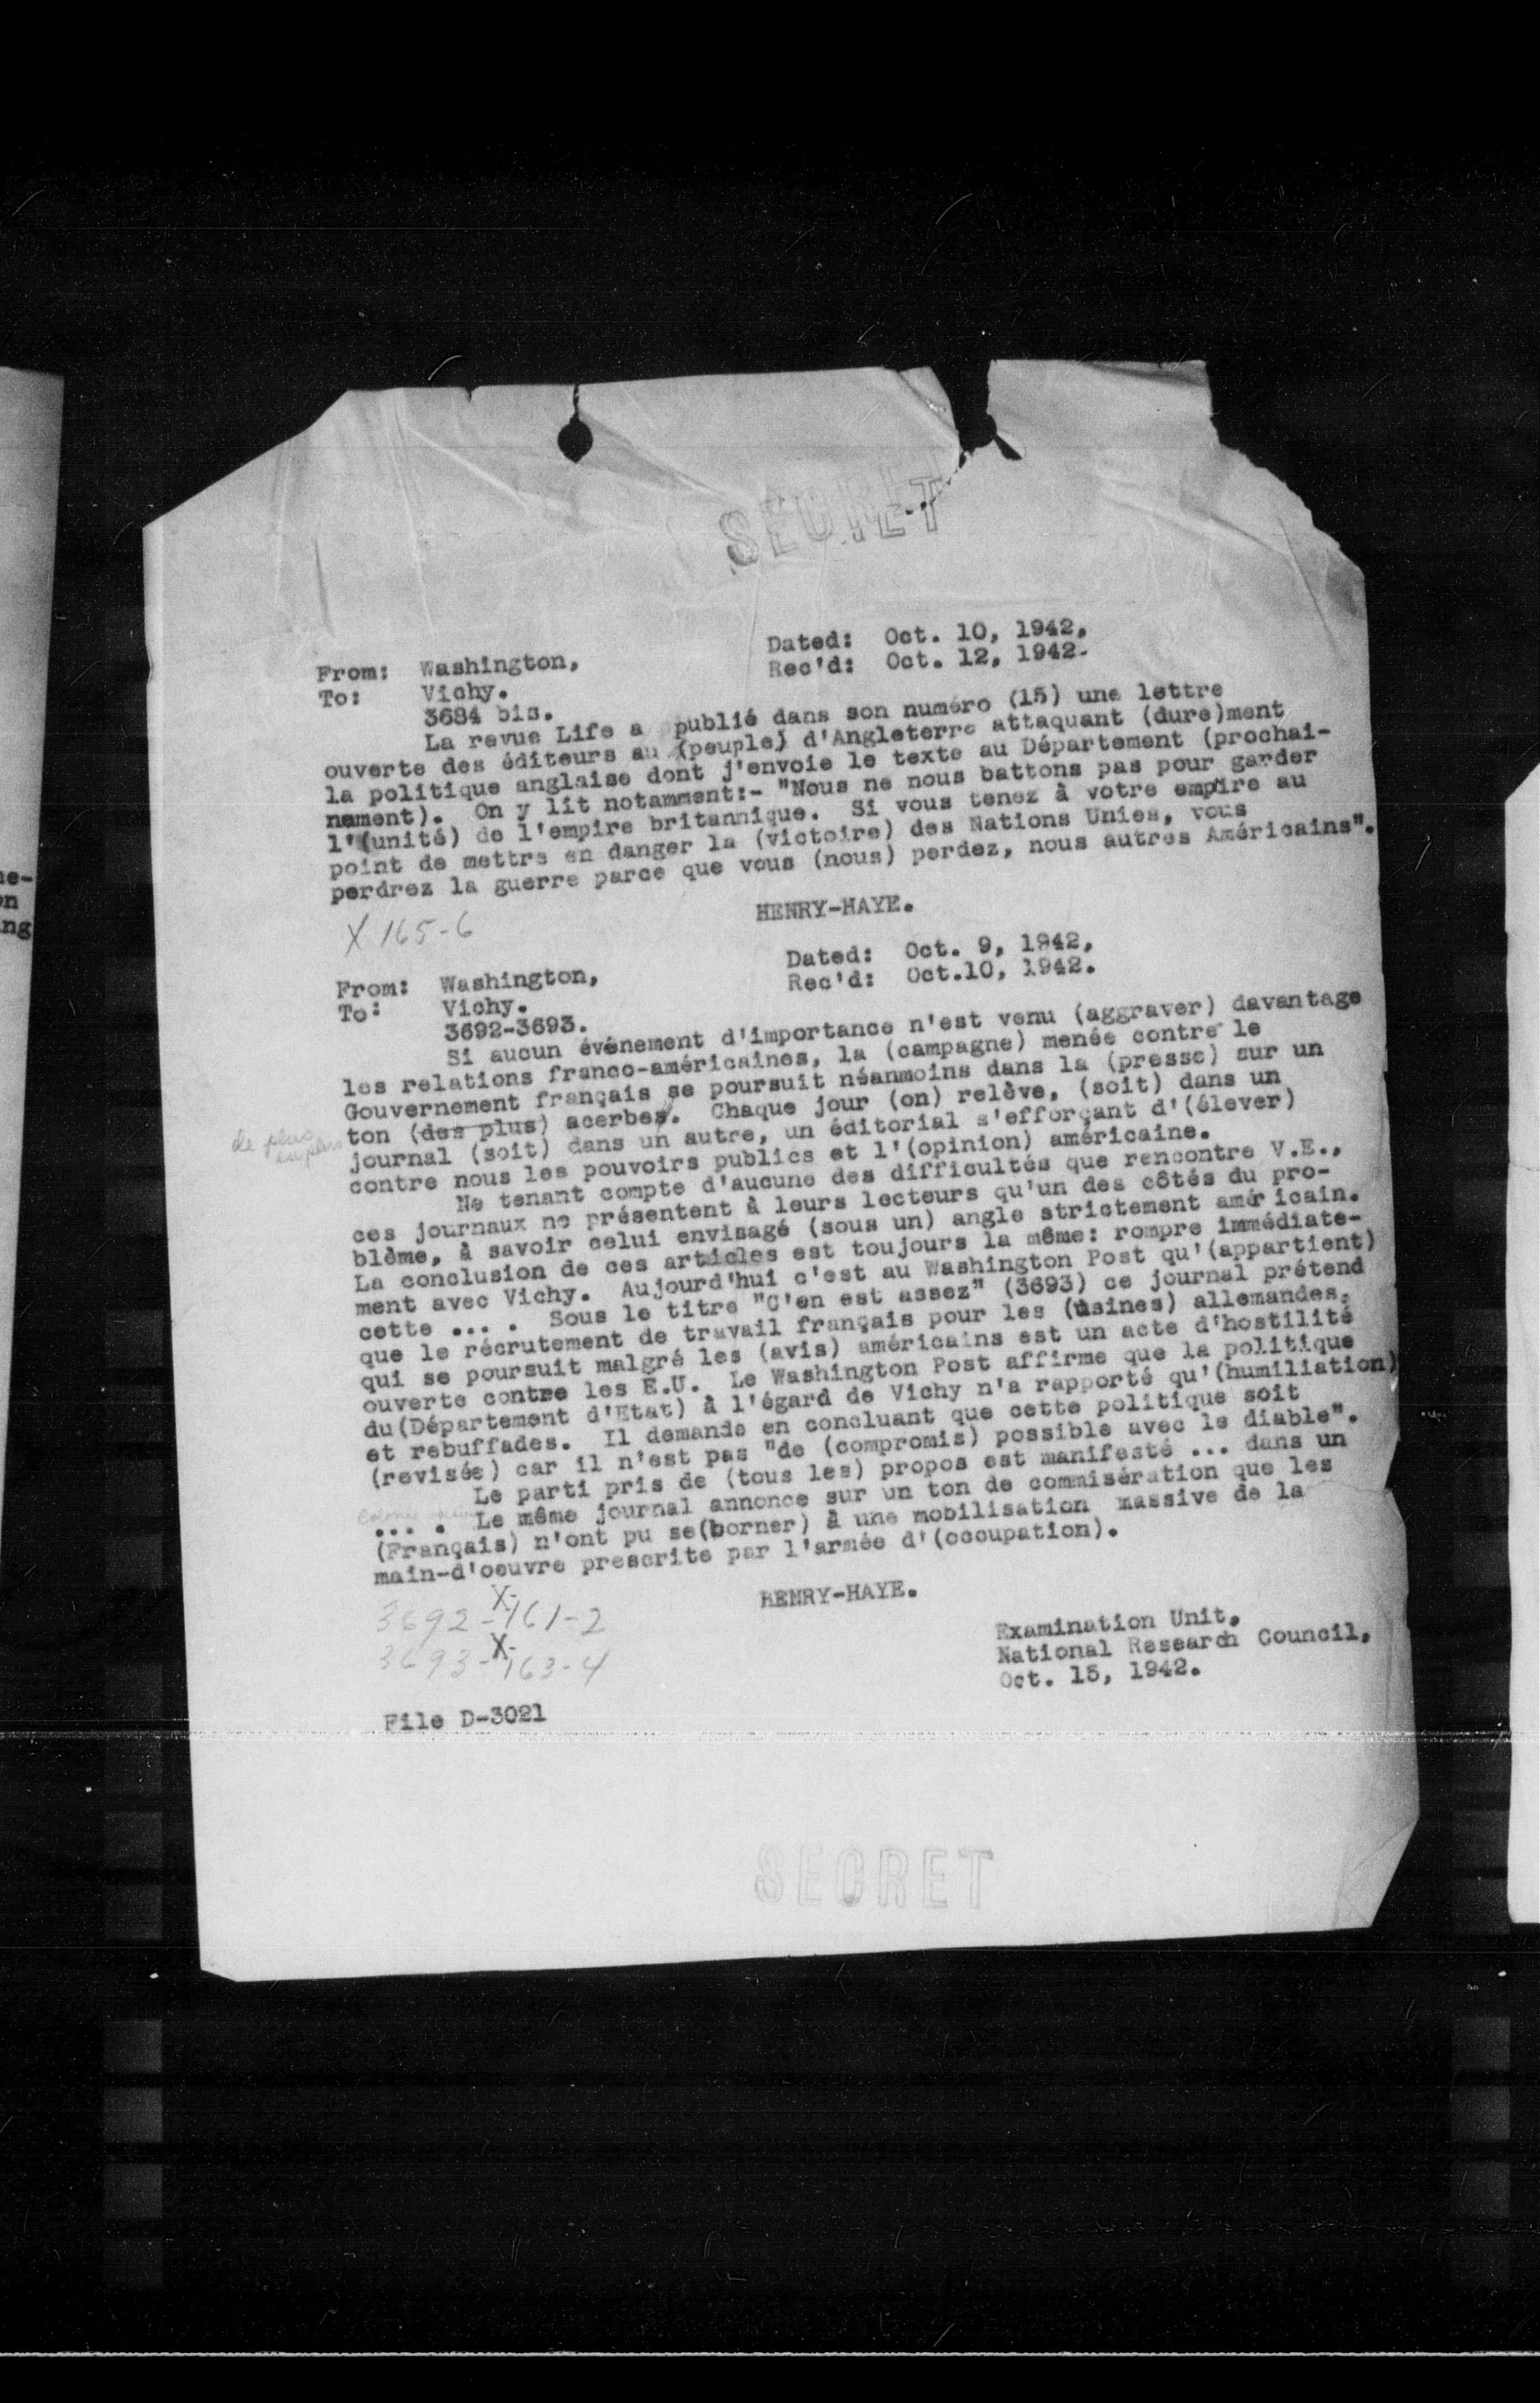 SECRET
From: Washington,
To: Vichy.
3684 bis.
Dated: Oct. 10, 1942,
Rec'd: Oct. 12, 1942.
La revue Life a publié dans son numéro (15) une lettre
ouverte des éditeurs au (peuple) d'Angleterre attaquant (dure)ment
la politique anglaise dont j'envoie le texte au Département (prochai-
nement). On y lit notamment:- "Nous ne nous battons pas pour garder
l'(unité) de l'empire britannique. Si vous tenez à votre empire au
point de mettre en danger la (victoire) des Nations Unies, vous
perdrez la guerre parce que vous (nous) perdez, nous autres Américains".
HENRY-HAYE.
X 165-6
From: Washington,
To: Vichy.
3692-3693.
Dated: Oct. 9, 1942,
Rec'd: Oct.10, 1942.
Si aucun événement d'importance n'est venu (aggraver) davantage
les relations franco-américaines, la (campagne) menée contre le
Gouvernement français se poursuit néanmoins dans la (presse) sur un
ton (des plus) acerbes. Chaque jour (on) relève, (soit) dans un
de plus en plus
journal (soit) dans un autre, un éditorial s'efforçant d'(élever)
contre nous les pouvoirs publics et l'(opinion) américaine.
Ne tenant compte d'aucune des difficultés que rencontre V.E.,
ces journaux ne présentent à leurs lecteurs qu'un des côtés du pro-
blème, à savoir celui envisagé (sous un) angle strictement américain.
La conclusion de ces articles est toujours la même: rompre immédiate-
ment avec Vichy. Aujourd'hui c'est au Washington Post qu'(appartient)
cette ... . Sous le titre "C'en est assez" (3693) ce journal prétend
que le récrutement de travail français pour les (usines) allemandes,
qui se poursuit malgré les (avis) américains est un acte d'hostilité
ouverte contre les E.U. Le Washington Post affirme que la politique
du(Département d'Etat) à l'égard de Vichy n'a rapporté qu'(humiliation)
et rebuffades. Il demande en concluant que cette politique soit
(revisée) car il n'est pas "de (compromis) possible avec le diable".
Le parti pris de (tous les) propos est manifesté ... dans un
... . Le même journal annonce sur un ton de commisération que les
(Français) n'ont pu se(borner) à une mobilisation massive de la
main-d'oeuvre prescrite par l'armée d'(occupation).
HENRY-HAYE.
3692-X-161-2
3693-X-163-4
Examination Unit,
National Research Council,
Oct. 13, 1942.
File D-3021
SECRET